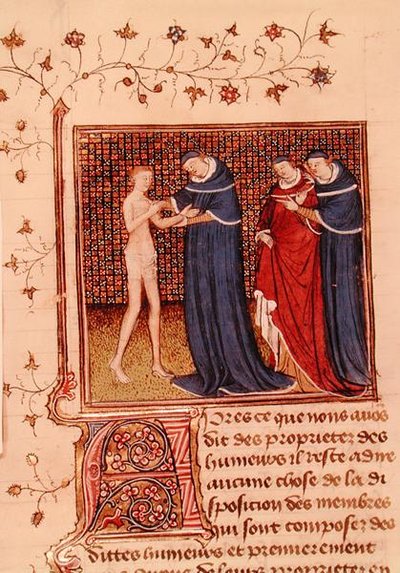 Apres ce que nous auōs
dit des proprietez des
humeurs il reste a dire
aucune chose de la di
sposicion des membres
qui sont composez des
dittes humeurs et premierement